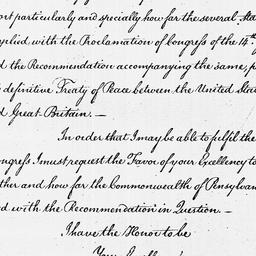 ort particularly and specially how far the several Sta
plied with the Proclamation of Congreſs of the 14th
d the Recommendation accompanying the same, p
definitive Treaty of Peace between the United Stat
d Great-Britain. —
In order that I may be able to fulfil the
ongreſs I must request the Favor of your Excellency to
ther and how far the Commonwealth of Pensylvan
ed with the Recommendation in Question. —
I have the Honor to be
Your